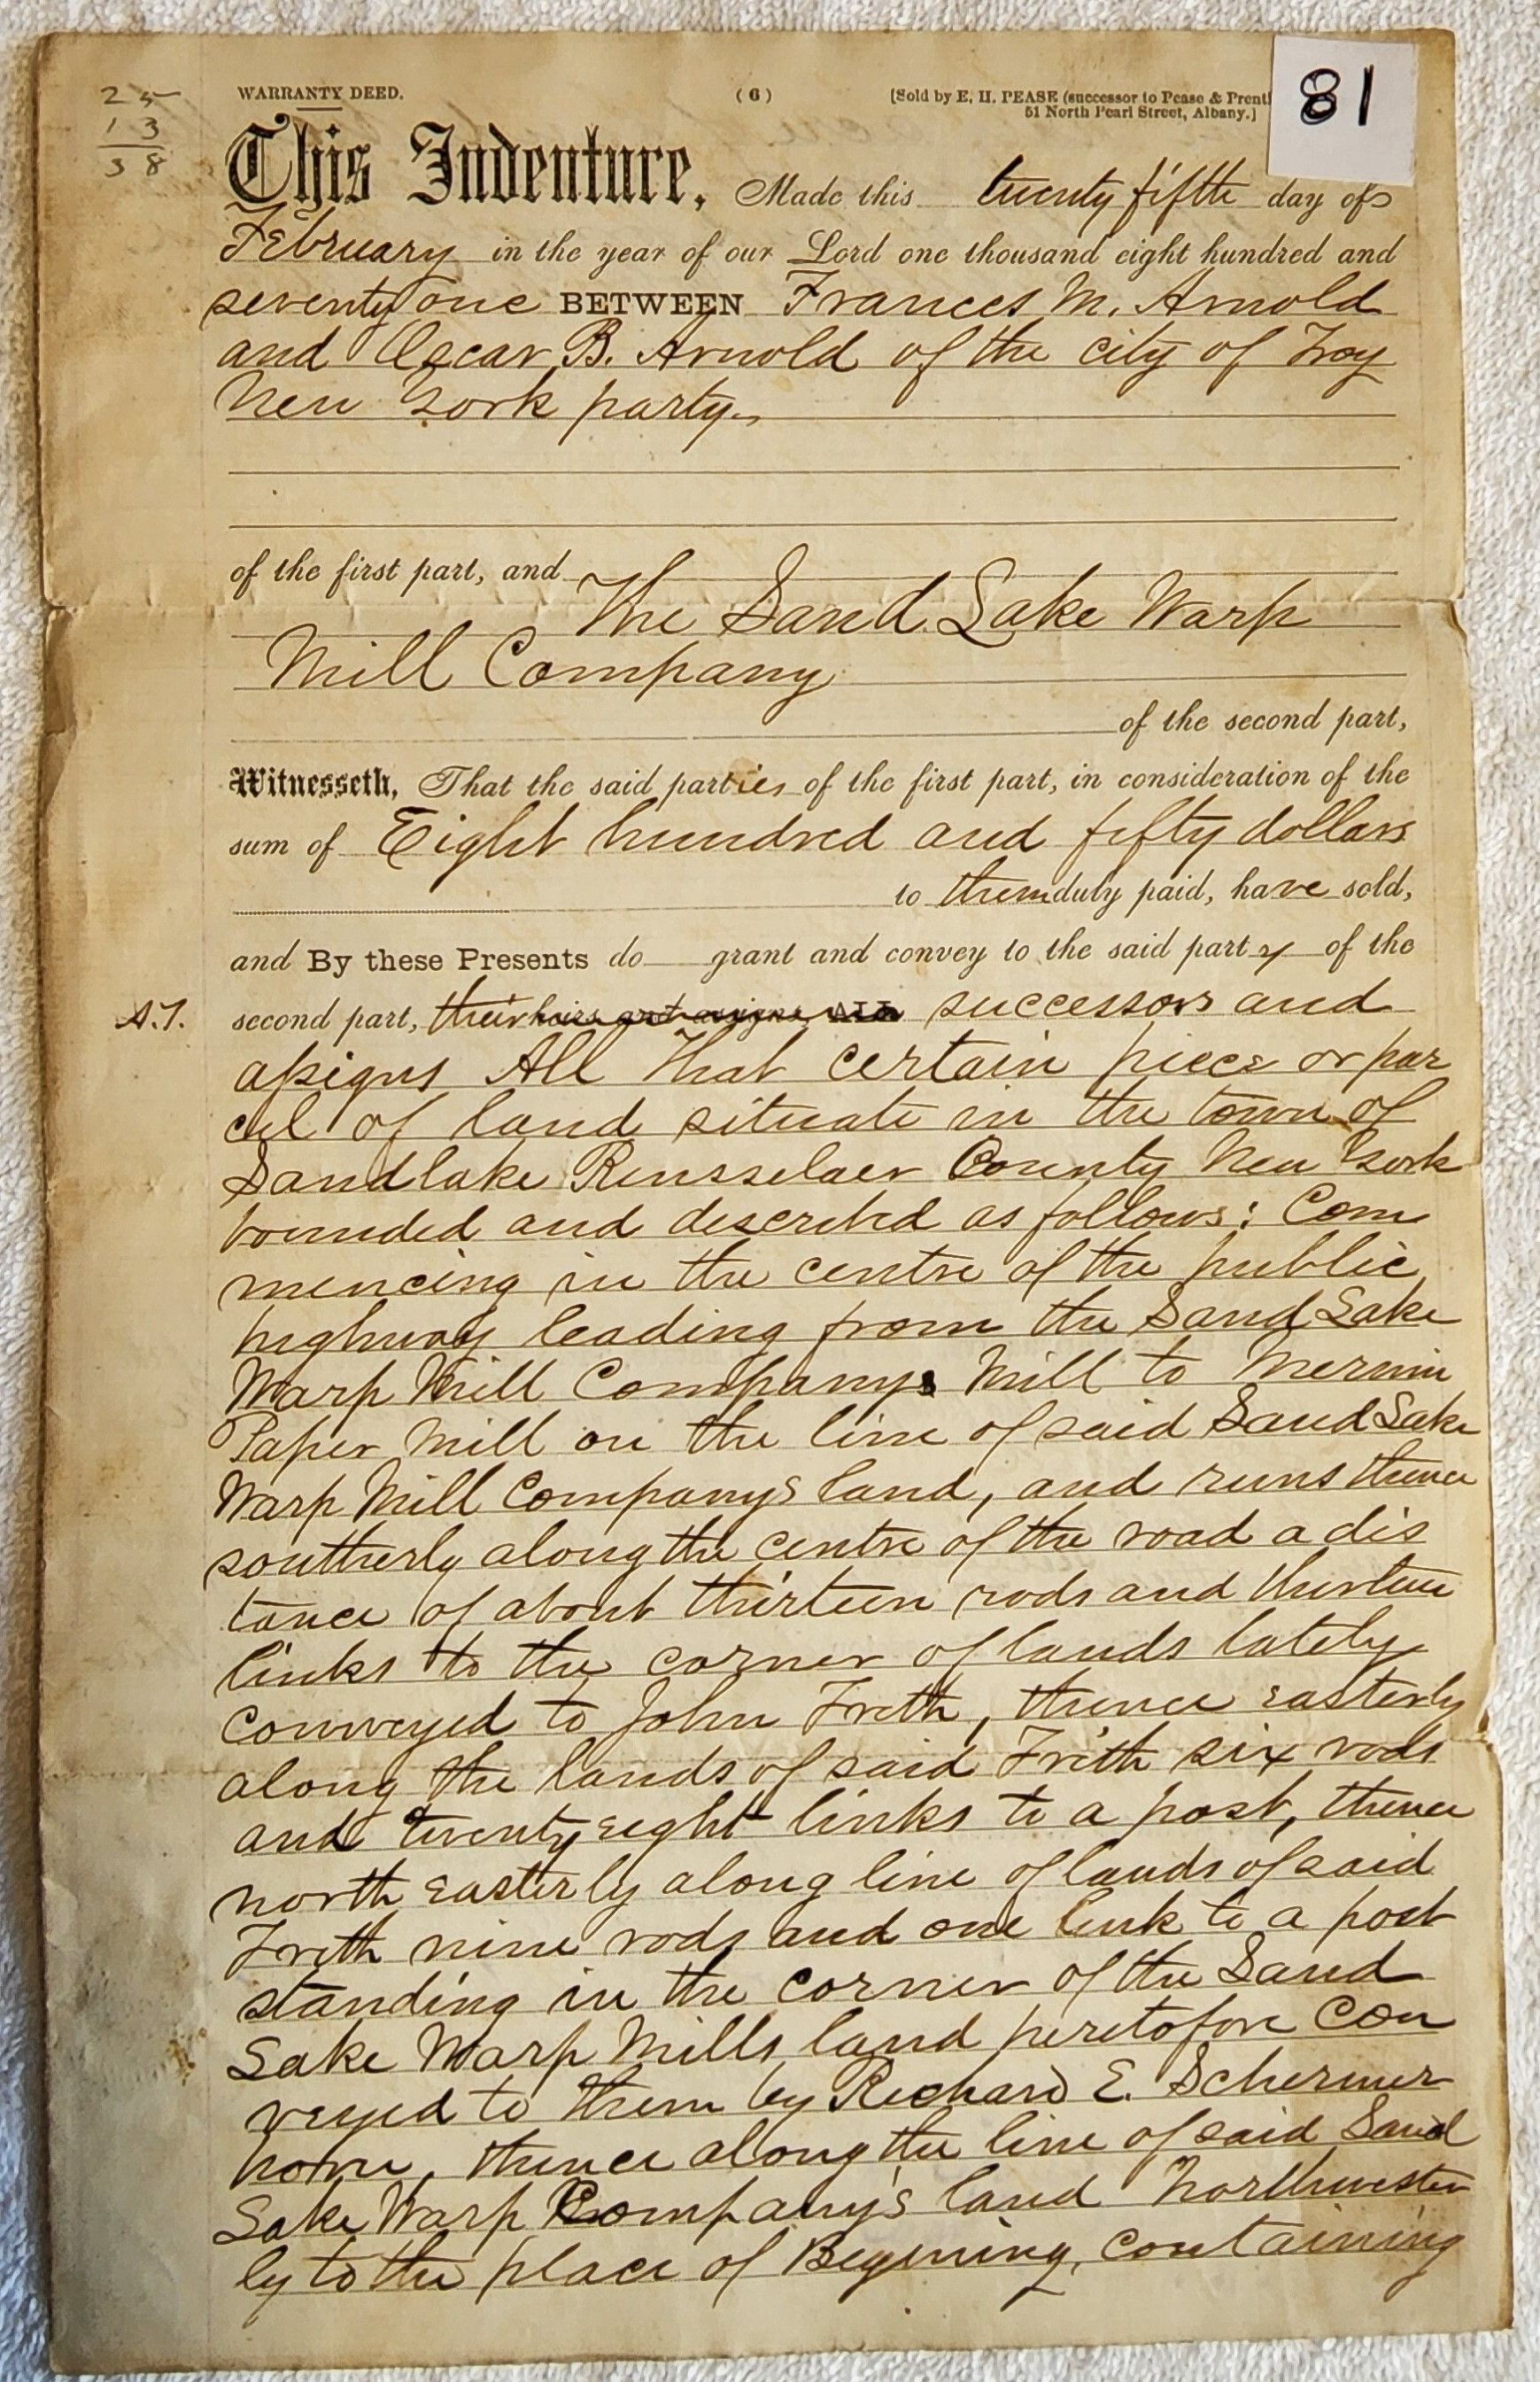 25
13
38
WARRANTY DEED.
(6)
[Sold by E. H. PEASE (successor to Pease & Prent
51 North Pearl Street, Albany.]
81
This Indenture, Made this twenty fifth day of
February in the year of our Lord one thousand eight hundred and
seventy one BETWEEN Frances M. Arnold
and Oscar B. Arnold of the city of Troy
New York party.,
of the first part, and
The Sand Lake Warp
Mill Company
of the second part,
Witnesseth, That the said parties of the first part, in consideration of the
sum of Eight hundred and fifty dollars
to them duly paid, have sold,
and By these Presents do grant and convey to the said party of the
A.T. second part, their heirs and assigns, ALL successors and
assigns All That certain piece or par
cel of land situate in the town of
Sandlake Rensselaer County New York
bounded and described as follows: Com
mencing in the centre of the public
highway leading from the Sand Lake
Warp Mill Companys Mill to Merwin
Paper Mill on the line of said Sand Lake
Warp Mill Company's land, and runs thence
southerly along the centre of the road a dis
tance of about thirteen rods and thirteen
links to the corner of lands lately
conveyed to John Frith, thence easterly
along the lands of said Frith six rods
and twenty eight links to a post, thence
north easterly along line of lands of said
Frith nine rods and one link to a post
standing in the corner of the Sand
Lake Warp Mills land heretofore con
veyed to them by Richard E. Schermer
horn, thence along the line of said Sand
Lake Warp Company's land Northwester
ly to the place of Begining, containing